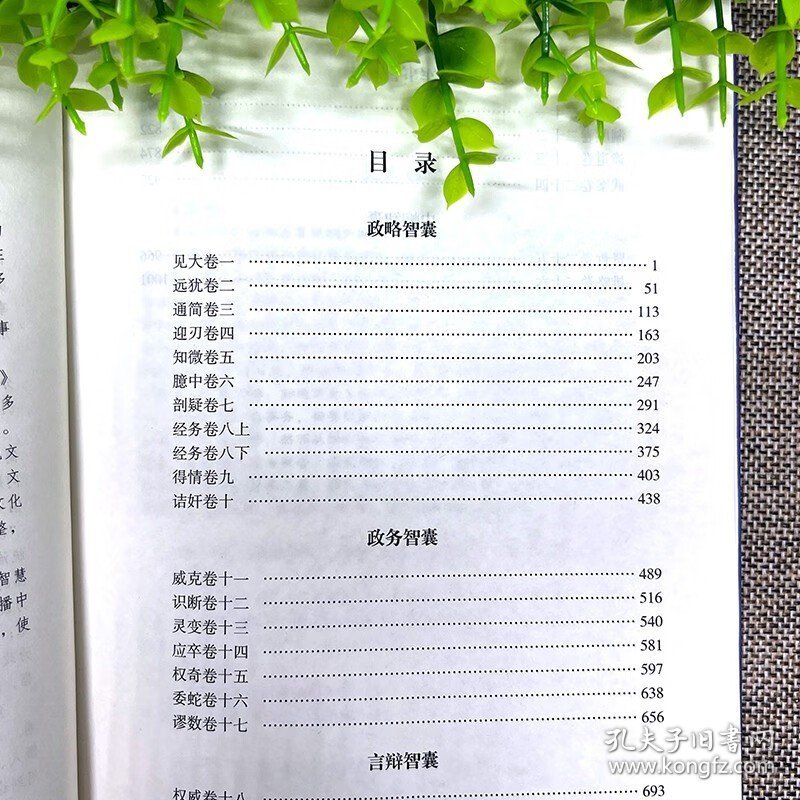 目 录
政略智囊
见大卷一 1
远犹卷二 51
通简卷三 113
迎刃卷四 163
知微卷五 203
臆中卷六 247
剖疑卷七 291
经务卷八上 324
经务卷八下 375
得情卷九 403
诘奸卷十 438
政务智囊
威克卷十一 489
识断卷十二 516
灵变卷十三 540
应卒卷十四 581
权奇卷十五 597
委蛇卷十六 638
谬数卷十七 656
言辩智囊
权威卷十八 693
多
事
》
多
。
文
文
文化
整，
智慧
播中
，使
孔夫子旧书网
www.kongfz.com